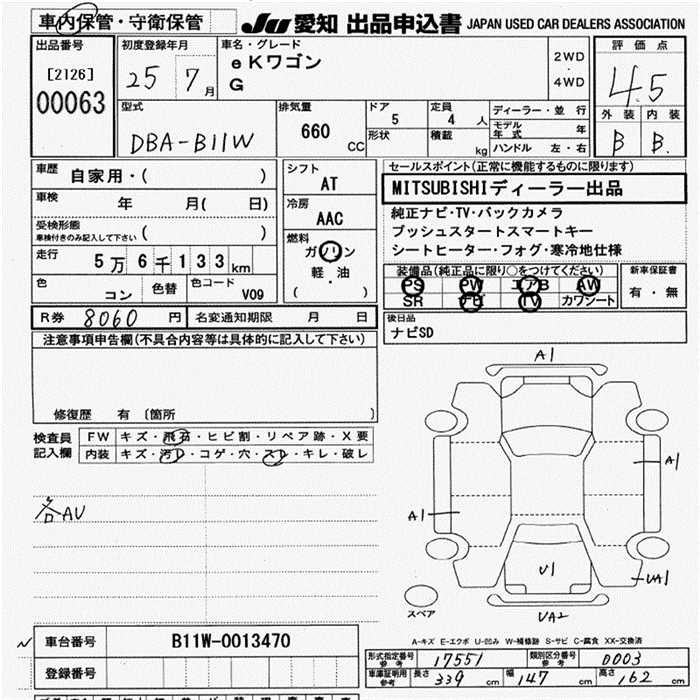 車内保管・守衛保管
JU 愛知 出品申込書 JAPAN USED CAR DEALERS ASSOCIATION
出品番号
[2126]
00063
初度登録年月
25 7 月
車名・グレード
eKワゴン
G
2WD
・
4WD
評価点
4.5
外装 内装
B B.
型式
DBA-B11W
排気量
660
CC
ドア
5
形状
定員
4 人
積載
kg
ディーラー・並行
モデル年式 年
ハンドル 左・右
車歴
自家用・( )
車検 年 月( 日)
受検形態
車検付きのみ記入して下さい ( )
走行 5万6千133km
色
コン
色替
色コード
V09
シフト
AT
冷房
AAC
燃料
ガソリン
軽・油
( )
セールスポイント(正常に機能するものに限ります)
MITSUBISHIディーラー出品
純正ナビ・TV・バックカメラ
プッシュスタートスマートキー
シートヒーター・フォグ・寒冷地仕様
装備品(純正品に限り○をつけてください)
PS PW エアB AW
SR ナビ TV カワシート
新車保証書
有・無
R券 8060 円
名変通知期限 月 日
後日品
ナビSD
注意事項申告欄(不具合内容等は具体的に記入して下さい)
修復歴 有 〔箇所 〕
検査員
記入欄
FW キズ・飛石・ヒビ割・リペア跡・X要
内装 キズ・汚レ・コゲ・穴・スレ・キレ・破レ
各AU
A1
A1
A1
U1
UA1
UA2
スペア
A-キズ E-エクボ U-凹み W-補修跡 S-サビ C-腐食 XX-交換済
車台番号 B11W-0013470
登録番号
形式指定番号
参考
17551
類別区分番号
参考
0003
車庫証明用
参考
長さ 339 cm 幅 147 cm 高さ 162 cm